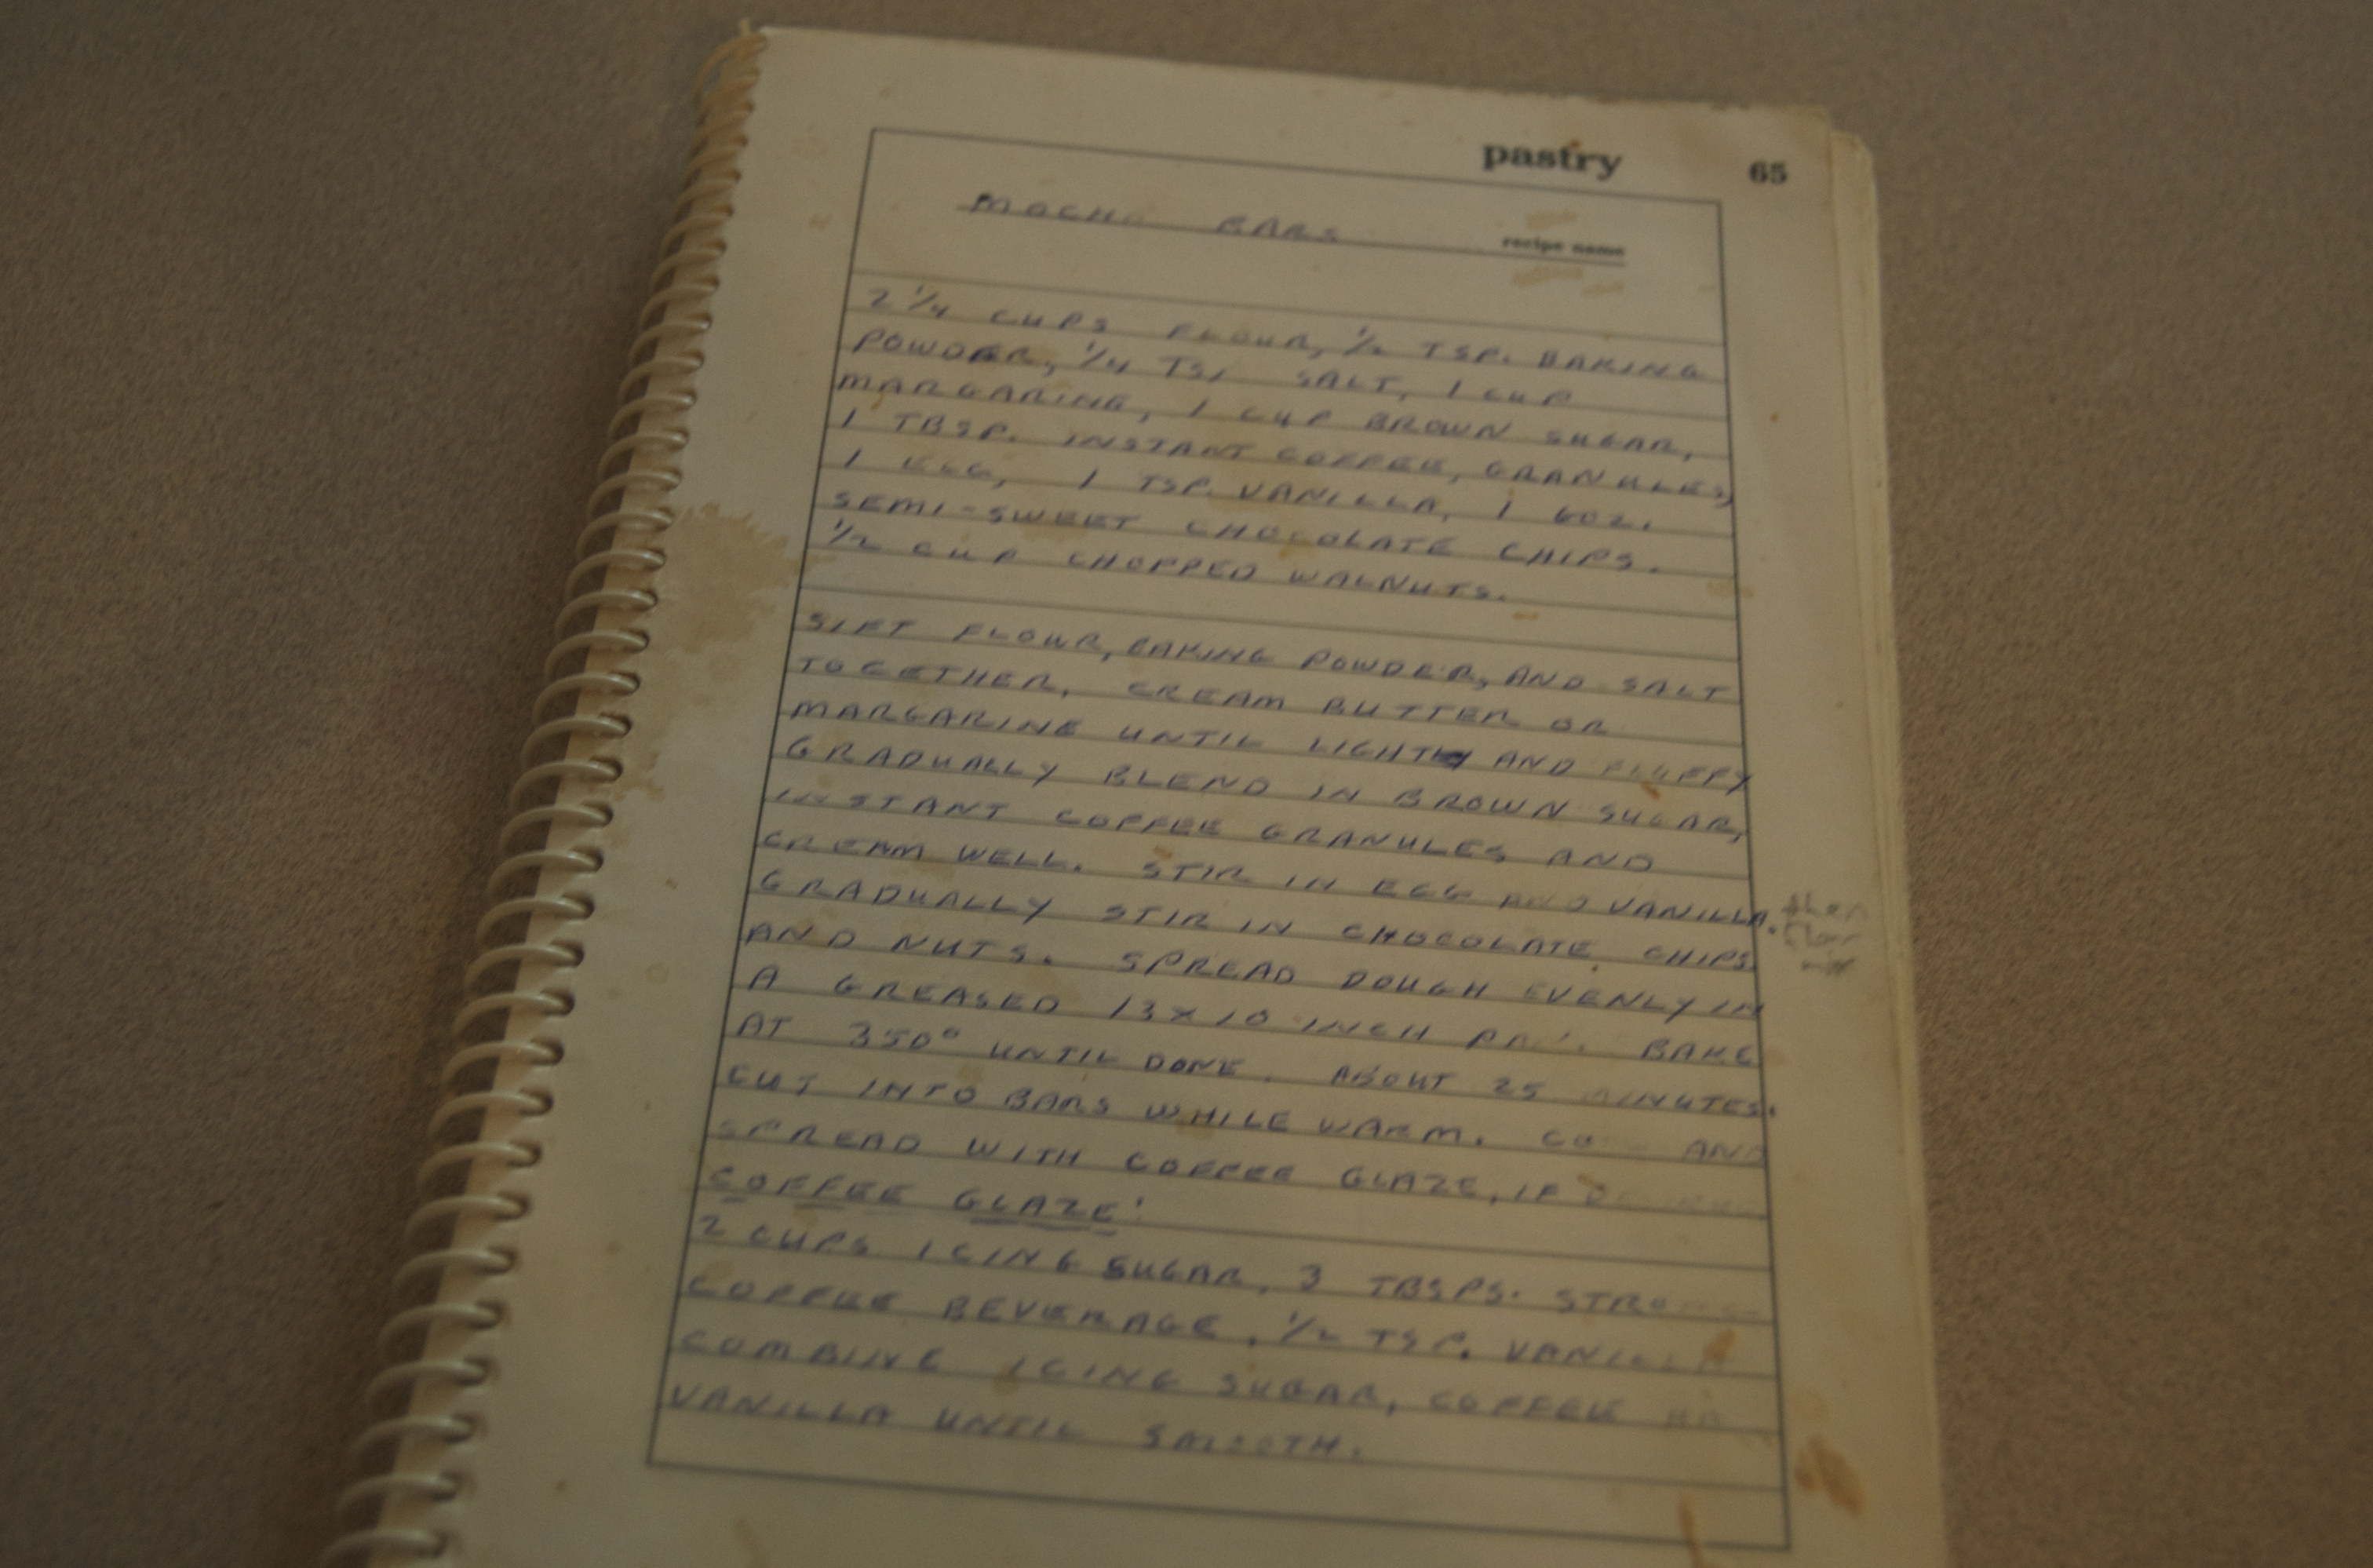 pastry 65
MOCHA BARS recipe name
2 1/4 CUPS FLOUR, 1/2 TSP. BAKING
POWDER, 1/4 TSP SALT, 1 CUP
MARGARINE, 1 CUP BROWN SUGAR,
1 TBSP. INSTANT COFFEE, GRANULES,
1 EGG, 1 TSP. VANILLA, 1 6OZ.
SEMI-SWEET CHOCOLATE CHIPS.
1/2 CUP CHOPPED WALNUTS.
SIFT FLOUR, BAKING POWDER, AND SALT
TOGETHER. CREAM BUTTER OR
MARGARINE UNTIL LIGHT AND FLUFFY
GRADUALLY BLEND IN BROWN SUGAR,
INSTANT COFFEE GRANULES AND
CREAM WELL. STIR IN EGG AND VANILLA.
GRADUALLY STIR IN CHOCOLATE CHIPS
AND NUTS. SPREAD DOUGH EVENLY IN
A GREASED 13 x 10 INCH PAN. BAKE
AT 350° UNTIL DONE. ABOUT 25 MINUTES.
CUT INTO BARS WHILE WARM. AND
SPREAD WITH COFFEE GLAZE, IF
COFFEE GLAZE:
2 CUPS ICING SUGAR, 3 TBSPS. STRONG
COFFEE BEVERAGE, 1/2 TSP. VANILLA
COMBINE ICING SUGAR, COFFEE
VANILLA UNTIL SMOOTH.